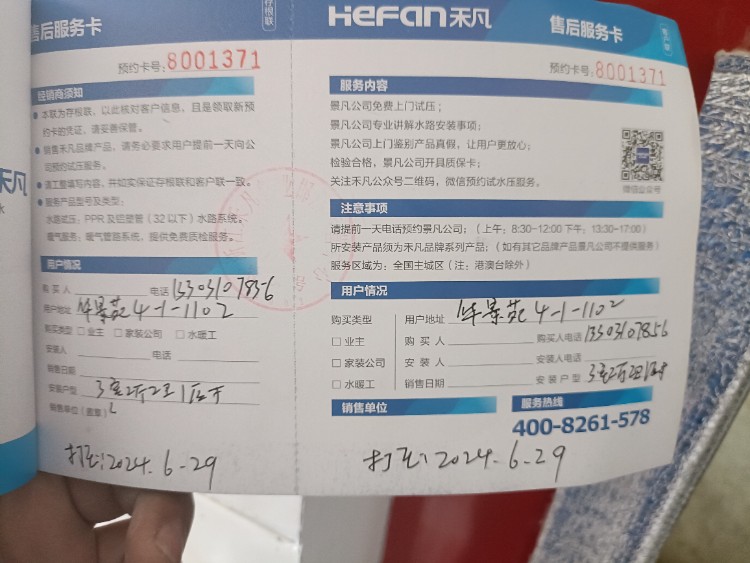 售后服务卡
存根联
预约卡号:8001371
经销商须知
本联为存根联,以此核对客户信息,且是领取新预
约卡的凭证,请妥善保管。
销售禾凡品牌产品,请务必要求用户提前一天向公
司预约试压服务。
请工整填写内容,并如实保证存根联和客户联一致。
服务产品型号及类型:
水路试压:PPR及铝塑管(32以下)水路系统。
暖气服务:暖气管路系统,提供免费质检服务。
用户情况
购买人 电话 13303107856
用户地址 华景苑 4-1-1102
购买类型 □业主 □家装公司 □水暖工
安装人 电话
销售日期
安装户型 3室2厅2卫1厨
销售单位(盖章)
打压:2024.6-29
禾凡
水
HeFan禾凡
售后服务卡
客户联
预约卡号:8001371
服务内容
景凡公司免费上门试压;
景凡公司专业讲解水路安装事项;
景凡公司上门鉴别产品真假,让用户更放心;
检验合格,景凡公司开具质保卡;
关注禾凡公众号二维码,微信预约试水压服务。
微信公众号
注意事项
请提前一天电话预约景凡公司;(上午:8:30-12:00 下午:13:30-17:00)
所安装产品须为禾凡品牌系列产品;(如有其它品牌产品景凡公司不提供服务)
服务区域为:全国主城区(注:港澳台除外)
用户情况
购买类型 用户地址 华景苑 4-1-1102
□业主 购买人 购买人电话 13303107856
□家装公司 安装人 安装人电话
□水暖工 销售日期 安装户型 3室2厅2卫1厨
销售单位
服务热线
400-8261-578
打压:2024.6-29